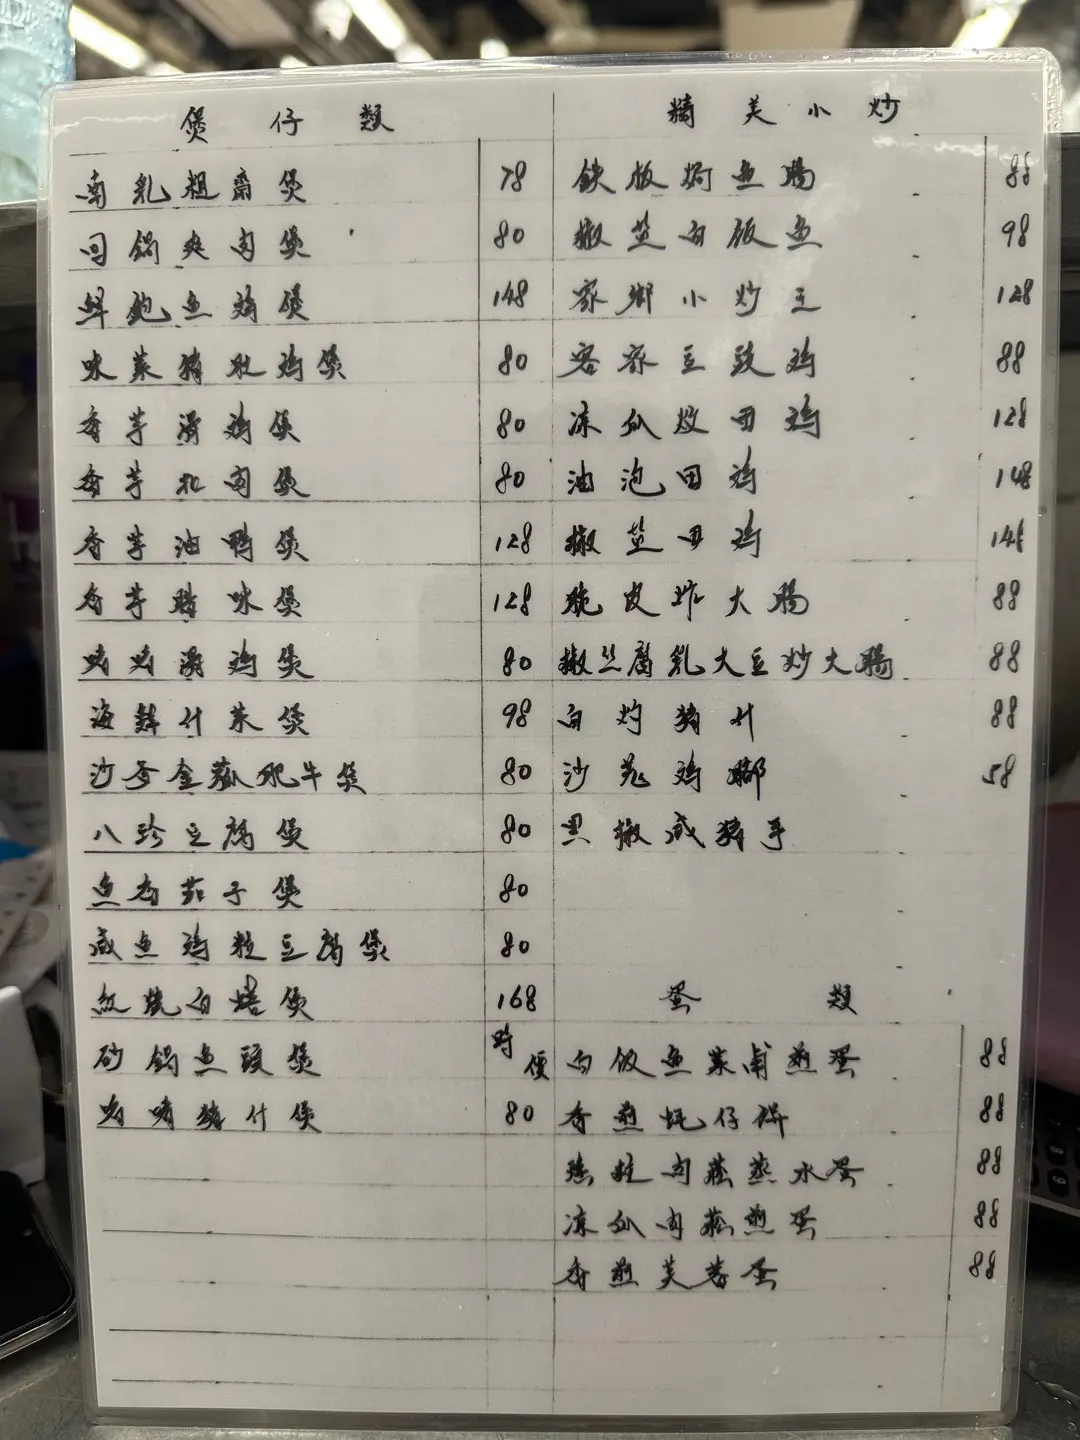 煲仔類
南乳粗齋煲 78
回鍋爽肉煲 80
鮮鮑魚鸡煲 148
咪菜豬肚鸡煲 80
香芋滑鸡煲 80
香芋扣肉煲 80
香芋油鴨煲 128
香芋腊味煲 128
滑鸡煲 80
海鲜什菜煲 98
沙爹金菰肥牛煲 80
八珍豆腐煲 80
魚香茄子煲 80
咸魚鸡粒豆腐煲 80
紅燒白鳝煲 168
砂鍋魚頭煲 時價
啫啫豬什煲 80
精美小炒
鉄板焗魚腸 88
椒盐白饭魚 98
家鄉小炒王 128
客家豆豉鸡 88
凉瓜炆田鸡 128
油泡田鸡 148
椒盐田鸡 148
脆皮炸大腸 88
椒丝腐乳大豆炒大腸 88
白灼豬什 88
沙羌鸡腳 58
黑椒咸豬手
蛋類
白饭魚菜甫煎蛋 88
香煎蚝仔餅 88
瑤柱肉菘蒸水蛋 88
凉瓜肉菘煎蛋 88
香煎芙蓉蛋 88